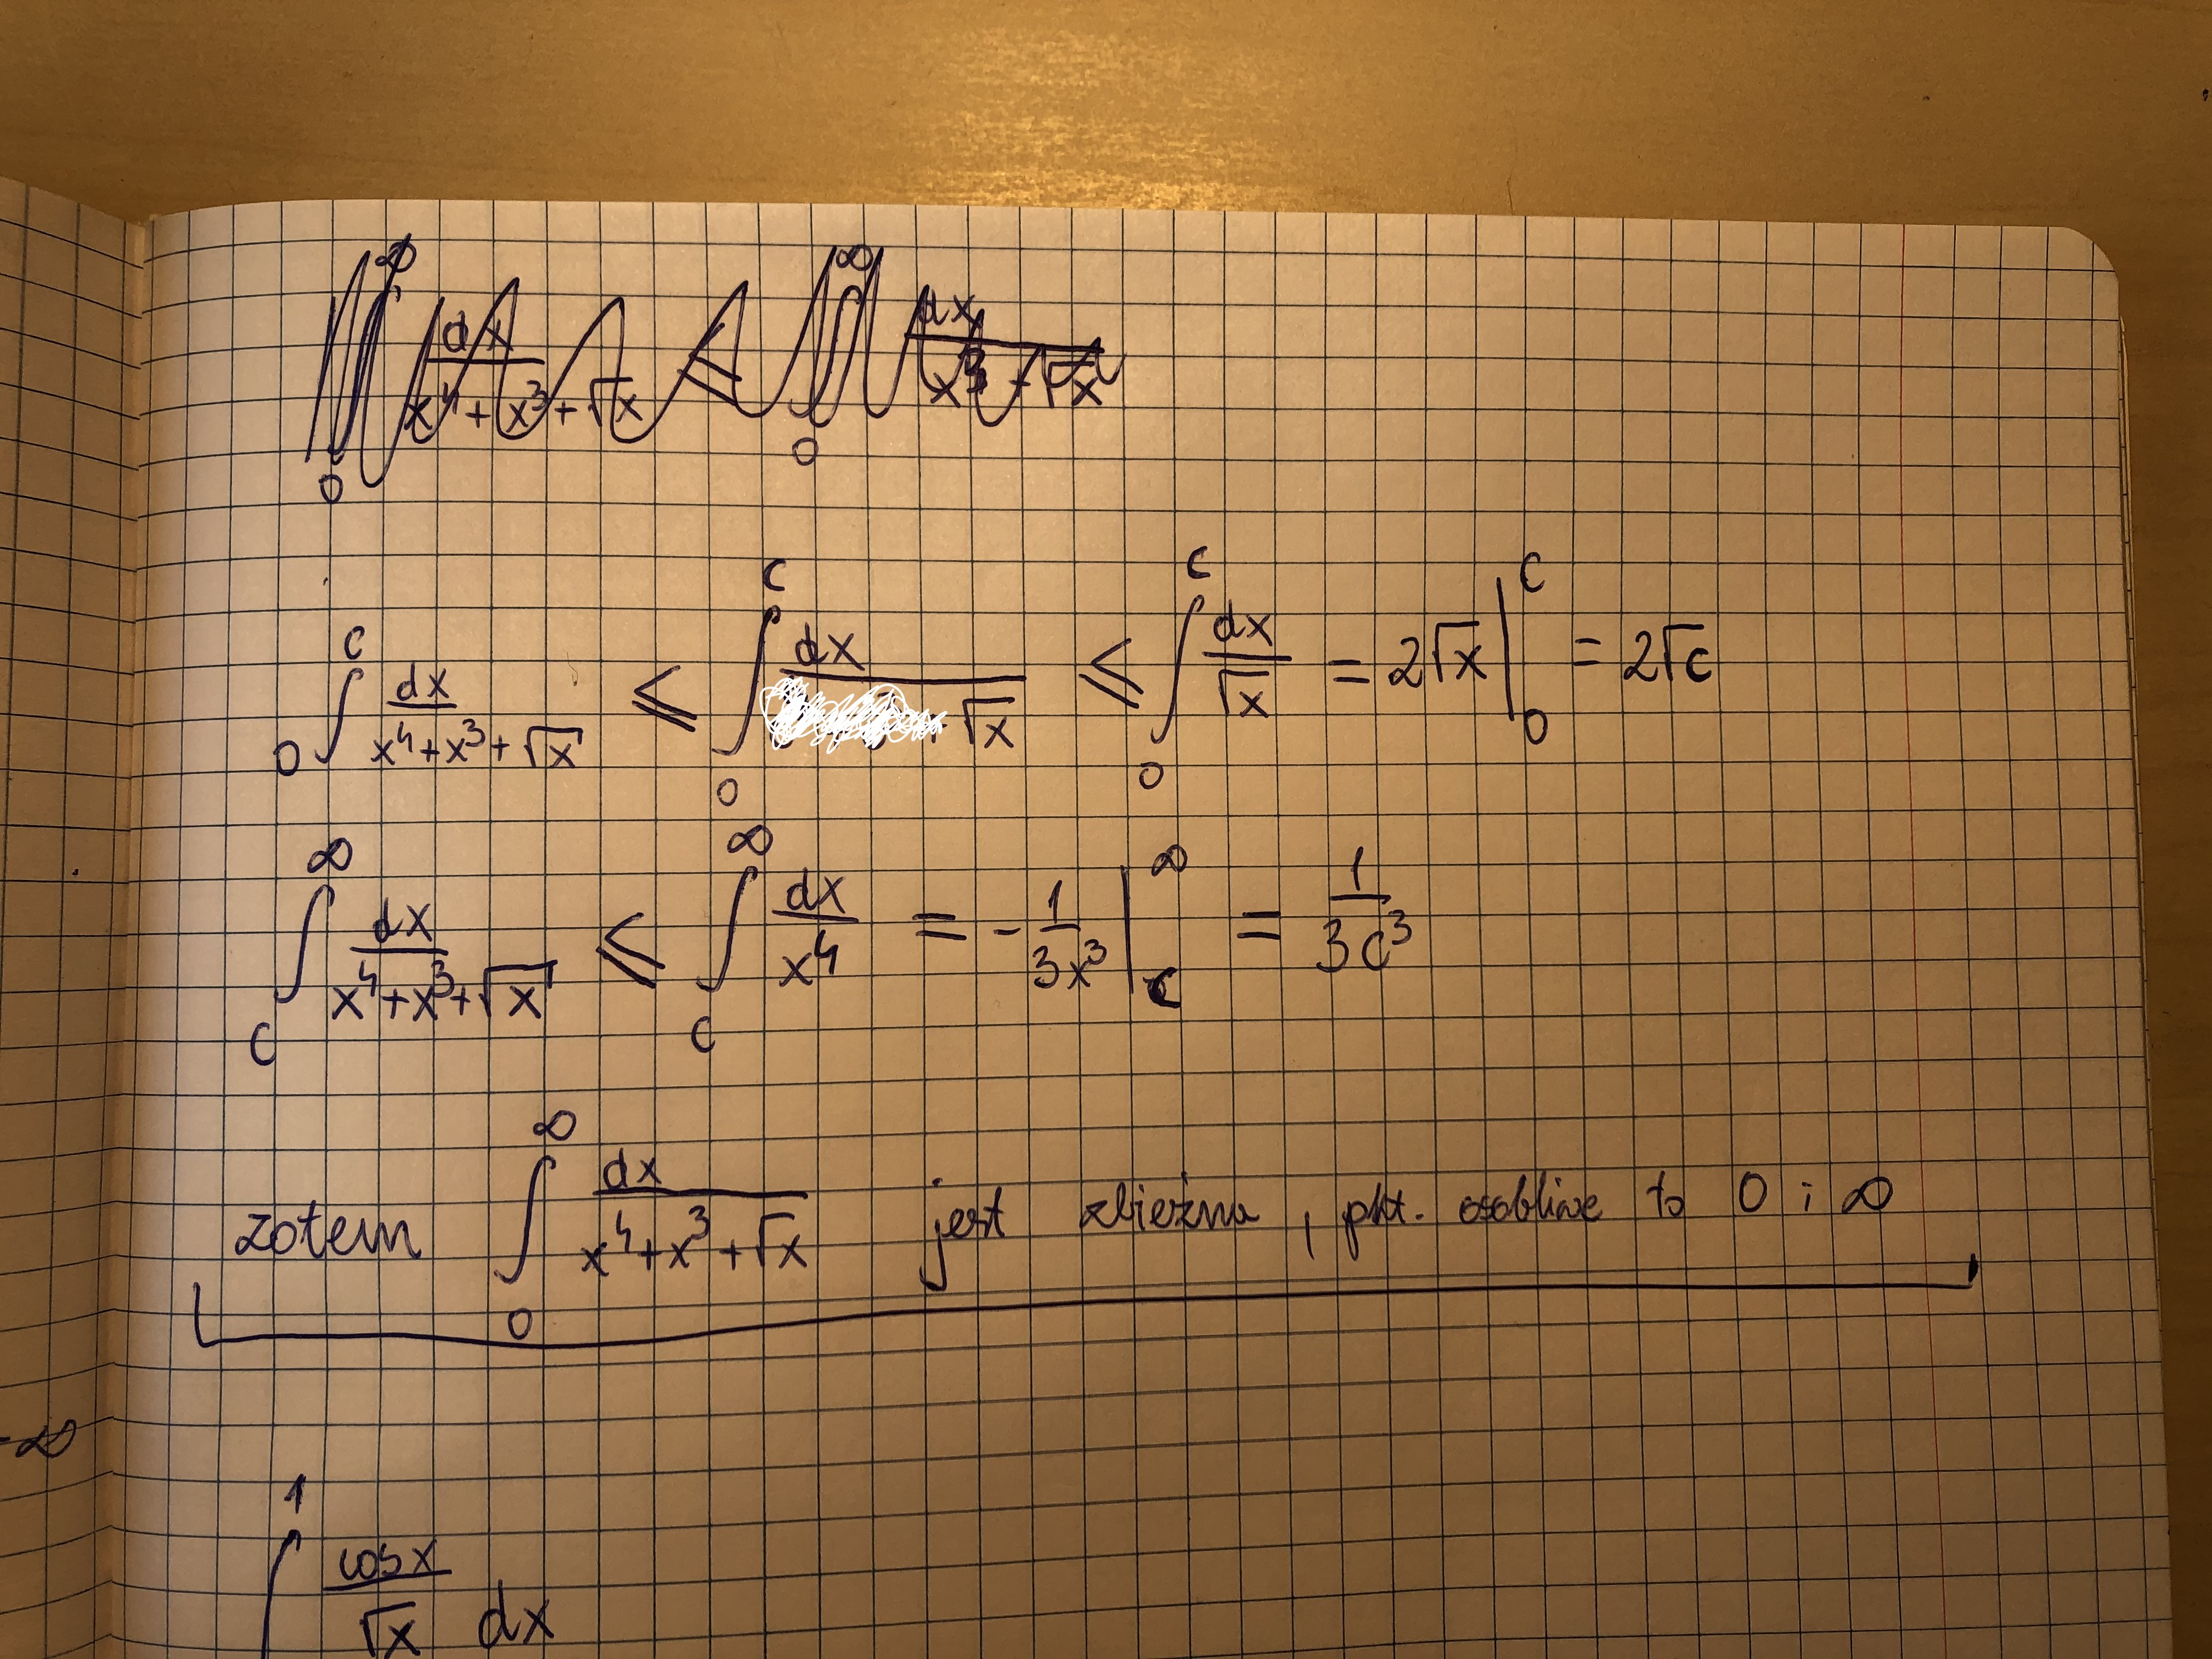 ∫_0^∞ dx/(x^4+x^3+√x) ≤ ∫_0^∞ dx/(x^3-√x)
∫_0^c dx/(x^4+x^3+√x) ≤ ∫_0^c dx/(+√x) ≤ ∫_0^c dx/√x = 2√x |_0^c = 2√c
∫_c^∞ dx/(x^4+x^3+√x) ≤ ∫_c^∞ dx/x^4 = -1/(3x^3) |_c^∞ = 1/(3c^3)
zatem ∫_0^∞ dx/(x^4+x^3+√x) jest zbieżna, pkt. osobliwe to 0 i ∞
-∞
∫^1 cosx/√x dx